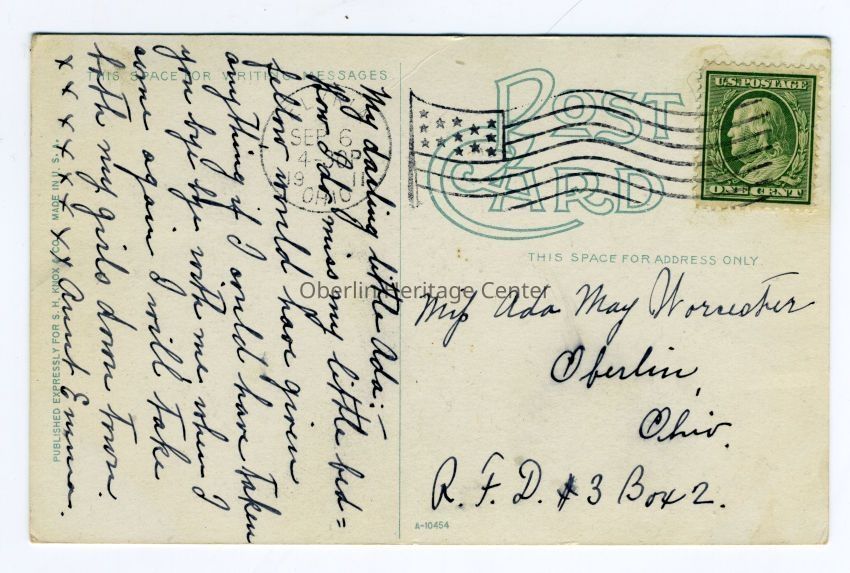 THIS SPACE FOR WRITING MESSAGES
POST
CARD
U.S. POSTAGE
ONE CENT
SEP 6
19 11
OHIO
THIS SPACE FOR ADDRESS ONLY.
My darling little Ada:-
How I do miss my little bed=
fellow would have given
anything if I could have taken
you bye bye with me when I
come again I will take
both my girls down town.
x x x x x x x x Aunt Emma.
Miss Ada May Worcester
Oberlin,
Ohio.
R. F. D. #3 Box 2.
Oberlin Heritage Center
PUBLISHED EXPRESSLY FOR S. H. KNOX & CO. MADE IN U. S. A.
A-10454